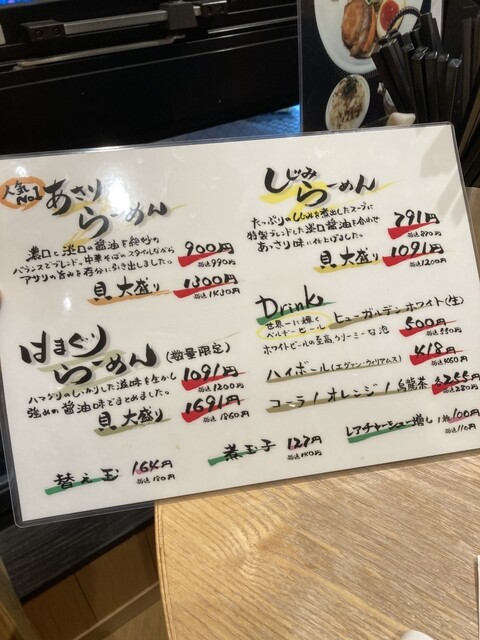 人気
No1
あさり
らーめん
濃口と淡口の醤油を絶妙の
バランスでブレンド。中華そばのスタイルながら
アサリの旨みを存分に引き出しました。
900円
税込990円
貝大盛り
1300円
税込1430円
しじみ
らーめん
たっぷりのしじみを煮出したスープに
特製ブレンドした淡口醤油を合わせ
あっさり味に仕上げました。
791円
税込870円
貝大盛り
1091円
税込1200円
はまぐり
らーめん
(数量限定)
ハマグリのしっかりした滋味を生かし
強めの醤油味でまとめました。
1091円
税込1200円
貝大盛り
1691円
税込1860円
Drink
世界一に輝く
ベルギービール
ヒューガルデンホワイト(生)
ホワイトビールの至高。クリーミーな泡
500円
税込550円
ハイボール(エヴァン・ウィリアムス)
418円
コーラ / オレンジ / 烏龍茶 各255円
税込280円
替え玉
164円
税込180円
煮玉子
127円
税込140円
レアチャーシュー増し 1枚100円
税込110円